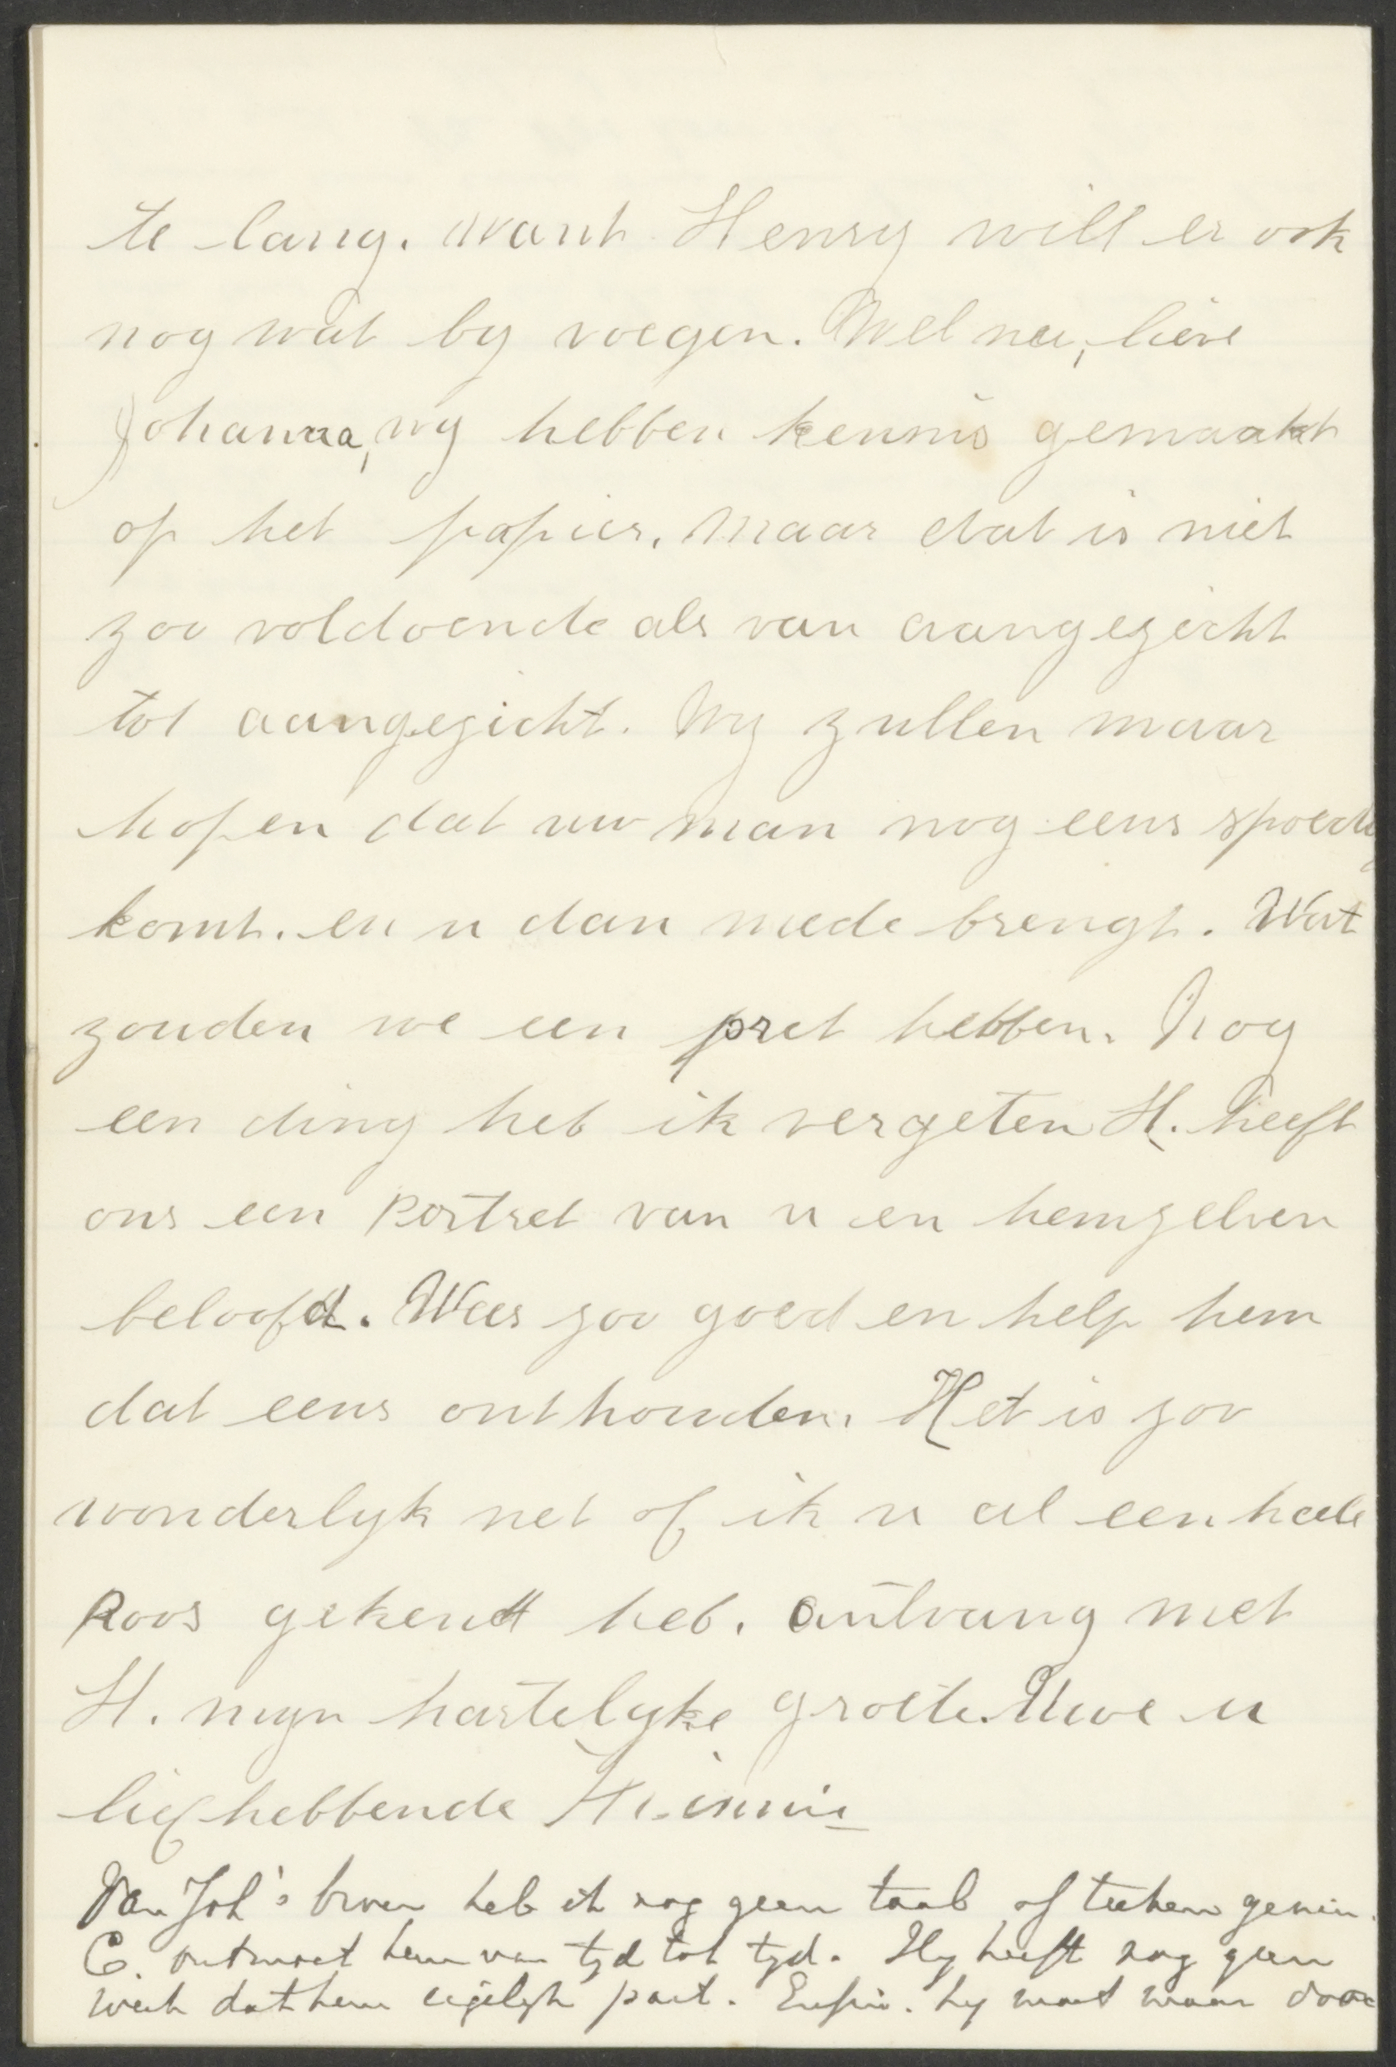 te lang. want Henry will er ook
nog wat by voegen. Wel nu, lieve
Johanna, wy hebben kennis gemaakt
op het papier. Maar dat is niet
zoo voldoende als van aangezicht
tot aangezicht. Wy zullen maar
hopen dat uw man nog eens spoedig
komt. en u dan mede brengt. Wat
zouden we een pret hebben. Nog
een ding heb ik vergeten H. heeft
ons een portret van u en hemzelven
beloofd. Wees zoo goed en help hem
dat eens onthouden. Het is zoo
wonderlyk net of ik u al een heele
Poos gekend heb. ontvang met
H. myn hartelyke groete. Uwe u
liefhebbende
Van Joh's broer heb ik nog geen taal of teeken gezien.
C. ontmoet hem van tyd tot tyd. Hy heeft nog geen
werk dat hem eigelyk past. Enfin. hy moet maar door